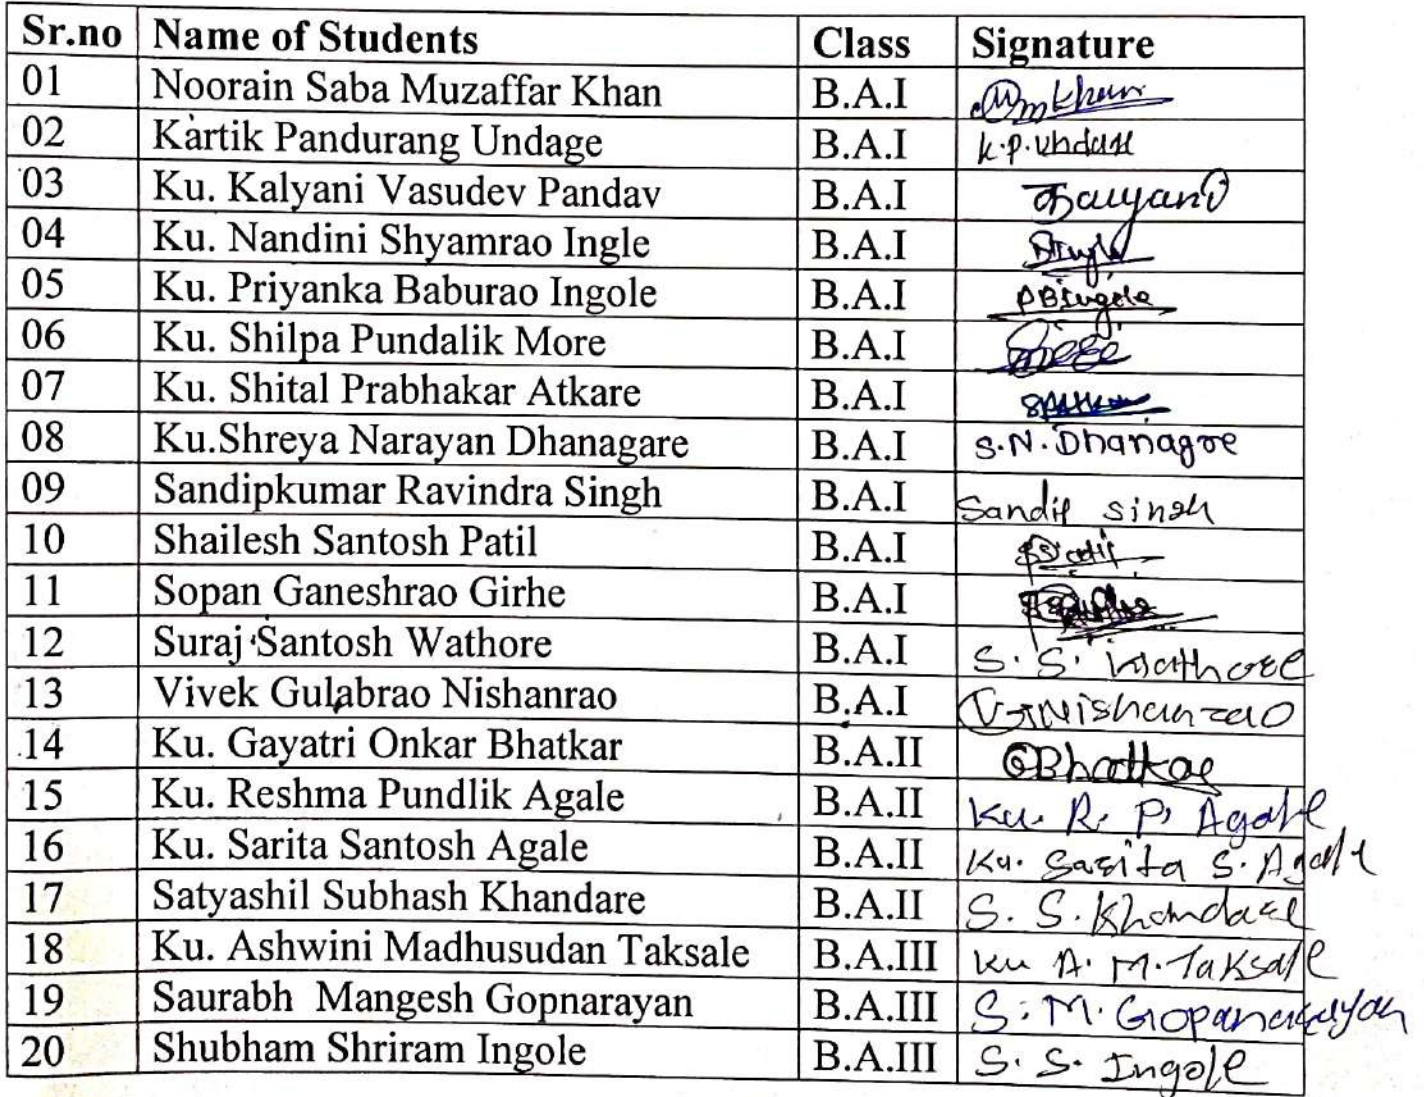 Sr.no Name of Students Class Signature
01 Noorain Saba Muzaffar Khan B.A.I Khan
02 Kartik Pandurang Undage B.A.I K.P.Undage
03 Ku. Kalyani Vasudev Pandav B.A.I
04 Ku. Nandini Shyamrao Ingle B.A.I
05 Ku. Priyanka Baburao Ingole B.A.I PBIngole
06 Ku. Shilpa Pundalik More B.A.I
07 Ku. Shital Prabhakar Atkare B.A.I
08 Ku.Shreya Narayan Dhanagare B.A.I S.N.Dhanagre
09 Sandipkumar Ravindra Singh B.A.I Sandip singh
10 Shailesh Santosh Patil B.A.I
11 Sopan Ganeshrao Girhe B.A.I
12 Suraj Santosh Wathore B.A.I S. S. Wathore
13 Vivek Gulabrao Nishanrao B.A.I VGNishanrao
14 Ku. Gayatri Onkar Bhatkar B.A.II GBhatkar
15 Ku. Reshma Pundlik Agale B.A.II Ku. R. P. Agale
16 Ku. Sarita Santosh Agale B.A.II Ku. Sarita S. Agale
17 Satyashil Subhash Khandare B.A.II S. S. Khandare
18 Ku. Ashwini Madhusudan Taksale B.A.III Ku A. M. Taksale
19 Saurabh Mangesh Gopnarayan B.A.III S. M. Gopanarayan
20 Shubham Shriram Ingole B.A.III S. S. Ingole